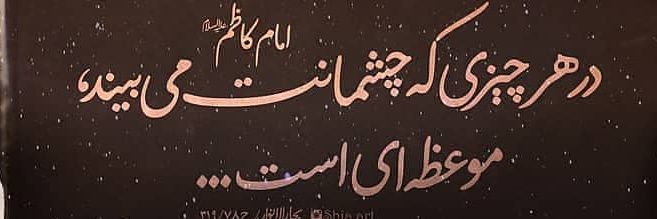 امام کاظم علیه‌السلام
در هر چیزی که چشمانت می بیند،
موعظه ای است...
بحارالانوار، ج۷۸/ ۳۱۹ Shia.art